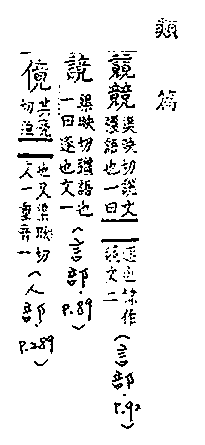 類篇
競競渠映切說文彊語也一曰逐也隸作競文二(言部.P.92)
渠映切彊語也一曰逐也文一(言部.P.89)
傹其亮切強也又渠映切文一重音一(人部.P.289)